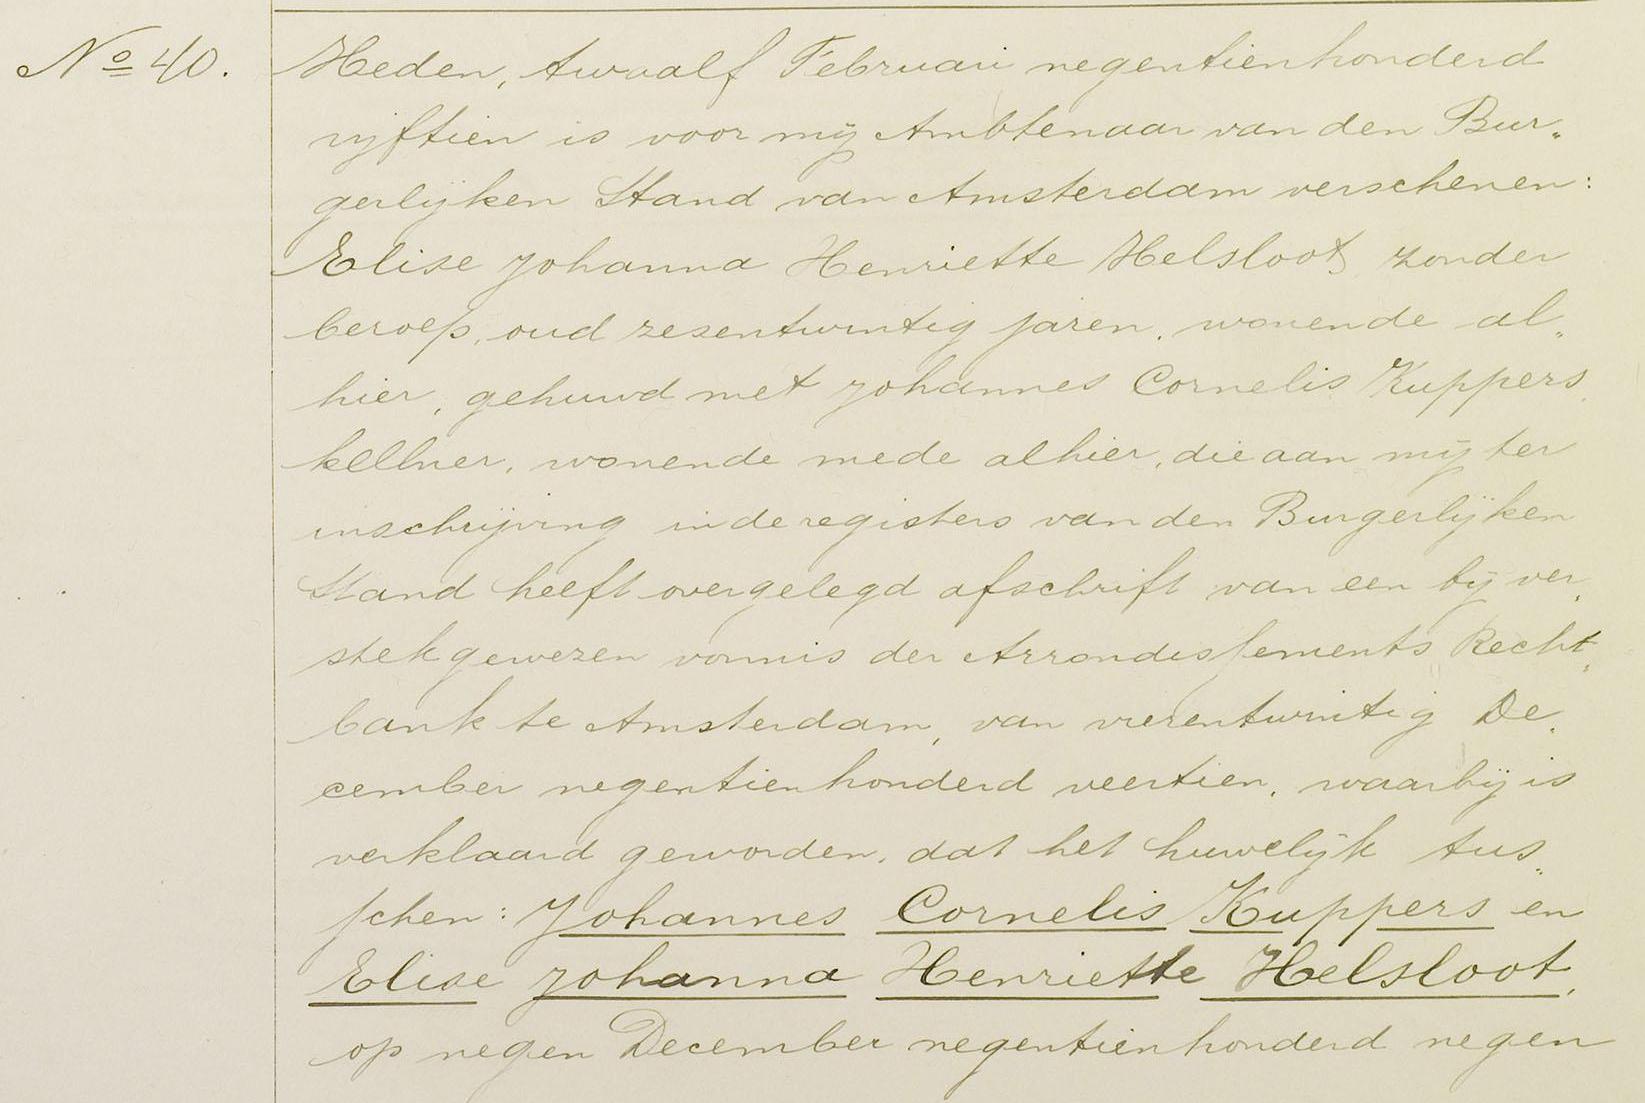 No 40.
Heden, twaalf Februari negentienhonderd
vijftien is voor mij Ambtenaar van den Bur„
gerlijken Stand van Amsterdam verschenen:
Elise Johanna Henriette Helsloot, zonder
beroep, oud zesentwintig jaren, wonende al„
hier, gehuwd met Johannes Cornelis Kuppers,
kellner, wonende mede alhier, die aan mij ter
inschrijving in de registers van den Burgerlijken
Stand heeft overgelegd afschrift van een bij ver„
stek gewezen vonnis der Arrondissements Recht„
bank te Amsterdam, van vierentwintig De„
cember negentienhonderd veertien, waarbij is
verklaard geworden, dat het huwelijk tus„
schen: Johannes Cornelis Kuppers en
Elise Johanna Henriette Helsloot,
op negen December negentienhonderd negen